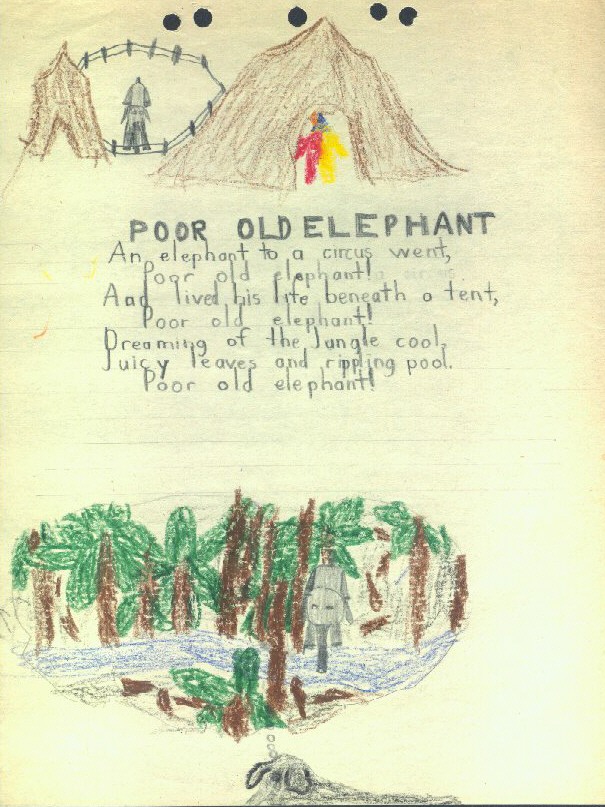 POOR OLD ELEPHANT
An elephant to a circus went,
Poor old elephant!
And lived his life beneath a tent,
Poor old elephant!
Dreaming of the Jungle cool,
Juicy leaves and rippling pool.
Poor old elephant!